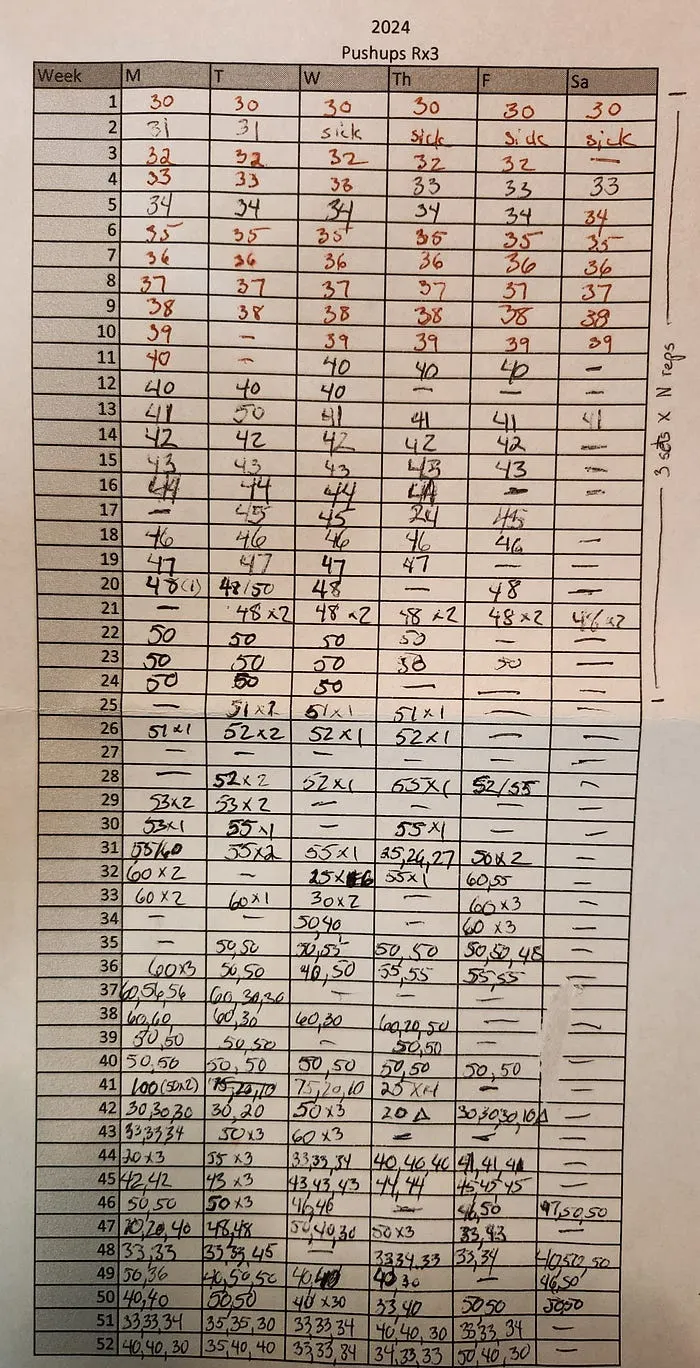 2024
Pushups Rx3
Week M T W Th F Sa
1 30 30 30 30 30 30
2 31 31 sick sick sick sick
3 32 32 32 32 32 —
4 33 33 33 33 33 33
5 34 34 34 34 34 34
6 35 35 35 35 35 35
7 36 36 36 36 36 36
8 37 37 37 37 37 37
9 38 38 38 38 38 38
10 39 — 39 39 39 39
11 40 — 40 40 40 —
12 40 40 40 — — —
13 41 50 41 41 41 41
14 42 42 42 42 42 —
15 43 43 43 43 43 —
16 44 44 44 44 — —
17 — 45 45 24 45
18 46 46 46 46 46 —
19 47 47 47 47
20 48(1) 48/50 48 — 48 —
21 — 48x2 48x2 48x2 48x2 48x2
22 50 50 50 50 — —
23 50 50 50 50 50 —
24 50 50 50 — — —
25 — 51x2 51x1 51x1 — —
26 51x1 52x2 52x1 52x1 — —
27 — — — — — —
28 — 52x2 52x1 55x1 52/55 —
29 53x2 53x2 — — — —
30 53x1 55x1 — 55x1 — —
31 55/60 55x2 55x1 25,26,27 50x2 —
32 60x2 — 25x6 55x1 60,55 —
33 60x2 60x1 30x2 — 60x3 —
34 — — 50,40 — 60x3 —
35 — 50,50 50,55 50,50 50,50,48 —
36 60x3 50,50 40,50 55,55 55,55 —
37 60,56,56 60,30,30 — — —
38 60,60 60,30 60,30 60,20,50 — —
39 50,50 50,50 — 50,50 —
40 50,50 50,50 50,50 50,50 50,50 —
41 100(50x2) 75,20,10 75,20,10 25x4 — —
42 30,30,30 30,20 50x3 20Δ 30,30,30,10Δ —
43 33,33,34 50x3 60x3 — — —
44 20x3 55x3 33,33,34 40,40,40 41,41,41 —
45 42,42 43x3 43,43,43 44,44 45,45,45 —
46 50,50 50x3 46,46 — 46,50 47,50,50
47 20,40 48,48 50,40,30 50x3 33,43 —
48 33,33 33,33,45 — 33,34,33 33,34 40,50,50
49 50,36 40,50,50 40,40 40,30 — 46,50
50 40,40 50,50 40x30 33,40 50,50 50,50
51 33,33,34 35,35,30 33,33,34 40,40,30 33,33,34 —
52 40,40,30 35,40,40 33,33,34 34,33,33 50,40,30 —
3 sets x N reps